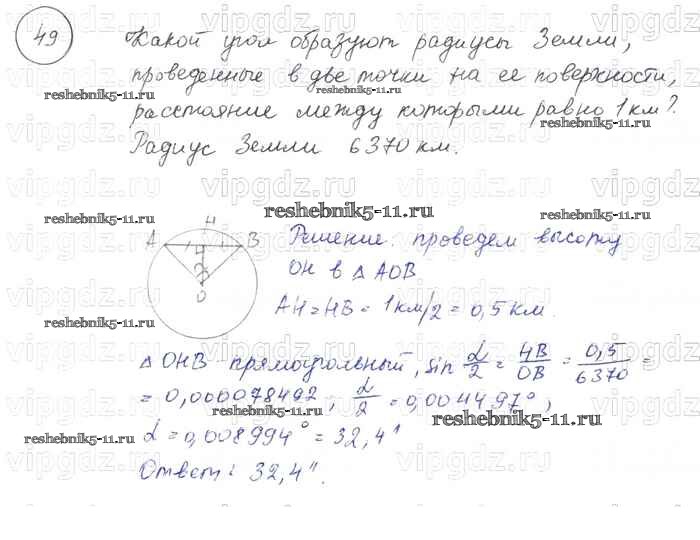 49
Какой угол образуют радиусы Земли,
проведенные в две точки на ее поверхности,
расстояние между которыми равно 1 км?
Радиус Земли 6370 км.
H
A B
O
Решение: проведем высоту
OH в △ AOB
AH = HB = 1км/2 = 0,5 км.
△ OHB - прямоугольный, sin α/2 = HB/OB = 0,5/6370 =
= 0,000078492 ; α/2 = 0,004497°,
α = 0,008994° = 32,4"
Ответ: 32,4".
vipgdz.ru
reshebnik5-11.ru